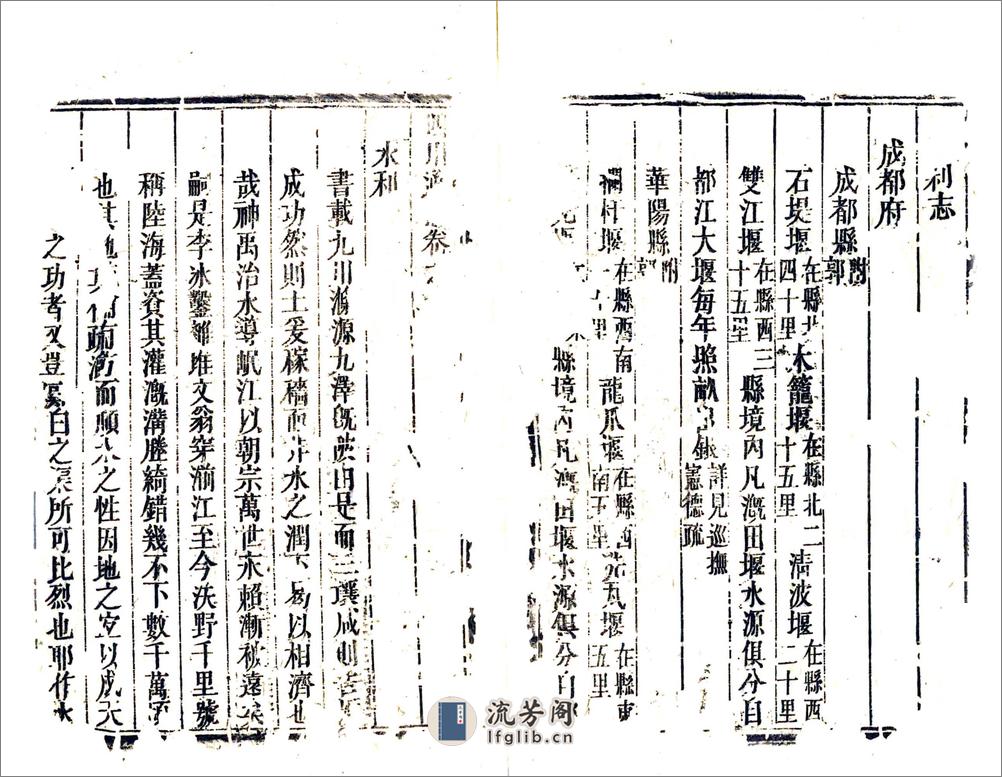 利志
成都府
成都縣附郭
石堤堰在縣北四十里木籠堰在縣北二十五里清波堰在縣西二十里
雙江堰在縣西十五里三縣境內凡溉田堰水源俱分自
都江大堰每年照畝銀詳見巡撫憲德疏
華陽縣附郭
欄杆堰在縣西南里龍爪堰在縣西南五里瓦堰在縣東五里
縣境內凡溉田堰水源俱分自
四川通卷
水利
書載九川滌源九澤既陂由是而三壤咸則
成功然則土爰稼穡而非水之潤下曷以相濟也
哉神禹治水導岷江以朝宗萬世永賴漸被遠矣
嗣是李冰鑿離堆文翁穿湔江至今沃野千里號
稱陸海蓋資其灌溉溝塍綺錯幾不下數千萬
也其疏瀹而順水之性因地之宜以成天
之功者又豈鄭白之渠所可比烈也耶作水
流芳阁
lfglib.cn